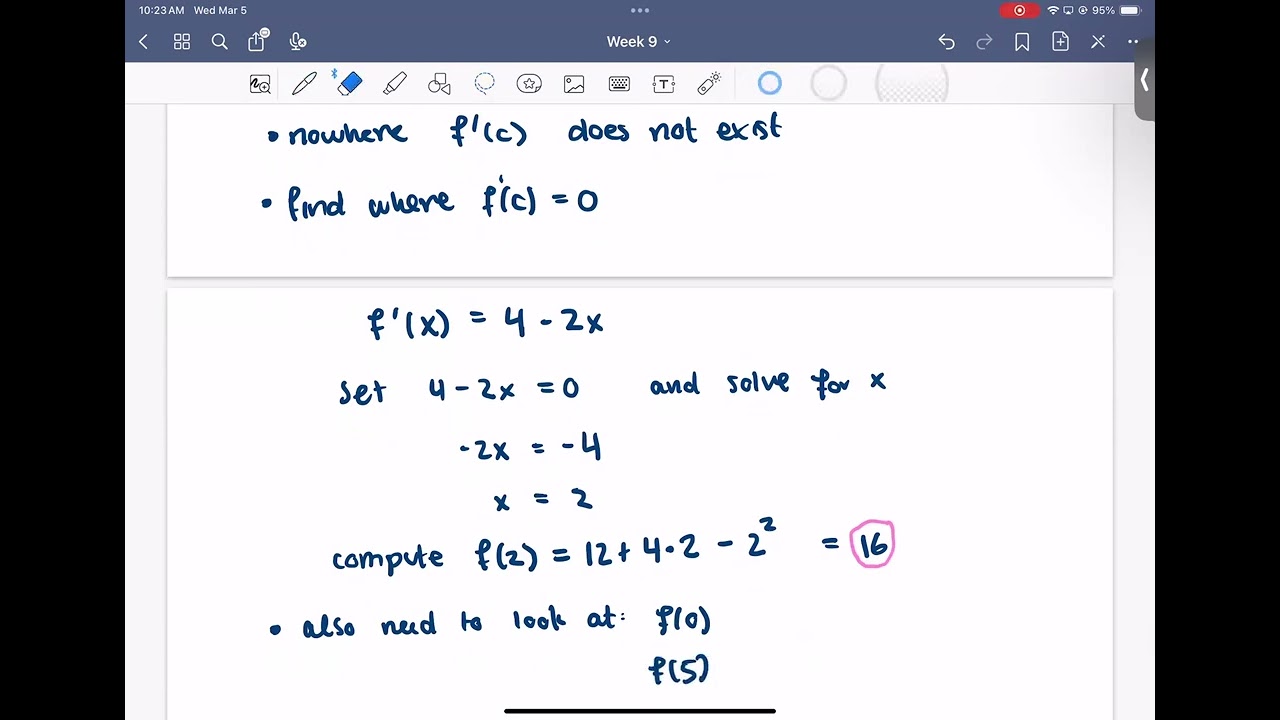 10:23 AM Wed Mar 5 95%
Week 9
• nowhere f'(c) does not exist
• find where f'(c) = 0
f'(x) = 4 - 2x
Set 4 - 2x = 0 and solve for x
-2x = -4
x = 2
compute f(2) = 12 + 4 • 2 - 2² = 16
• also need to look at: f(0)
f(5)